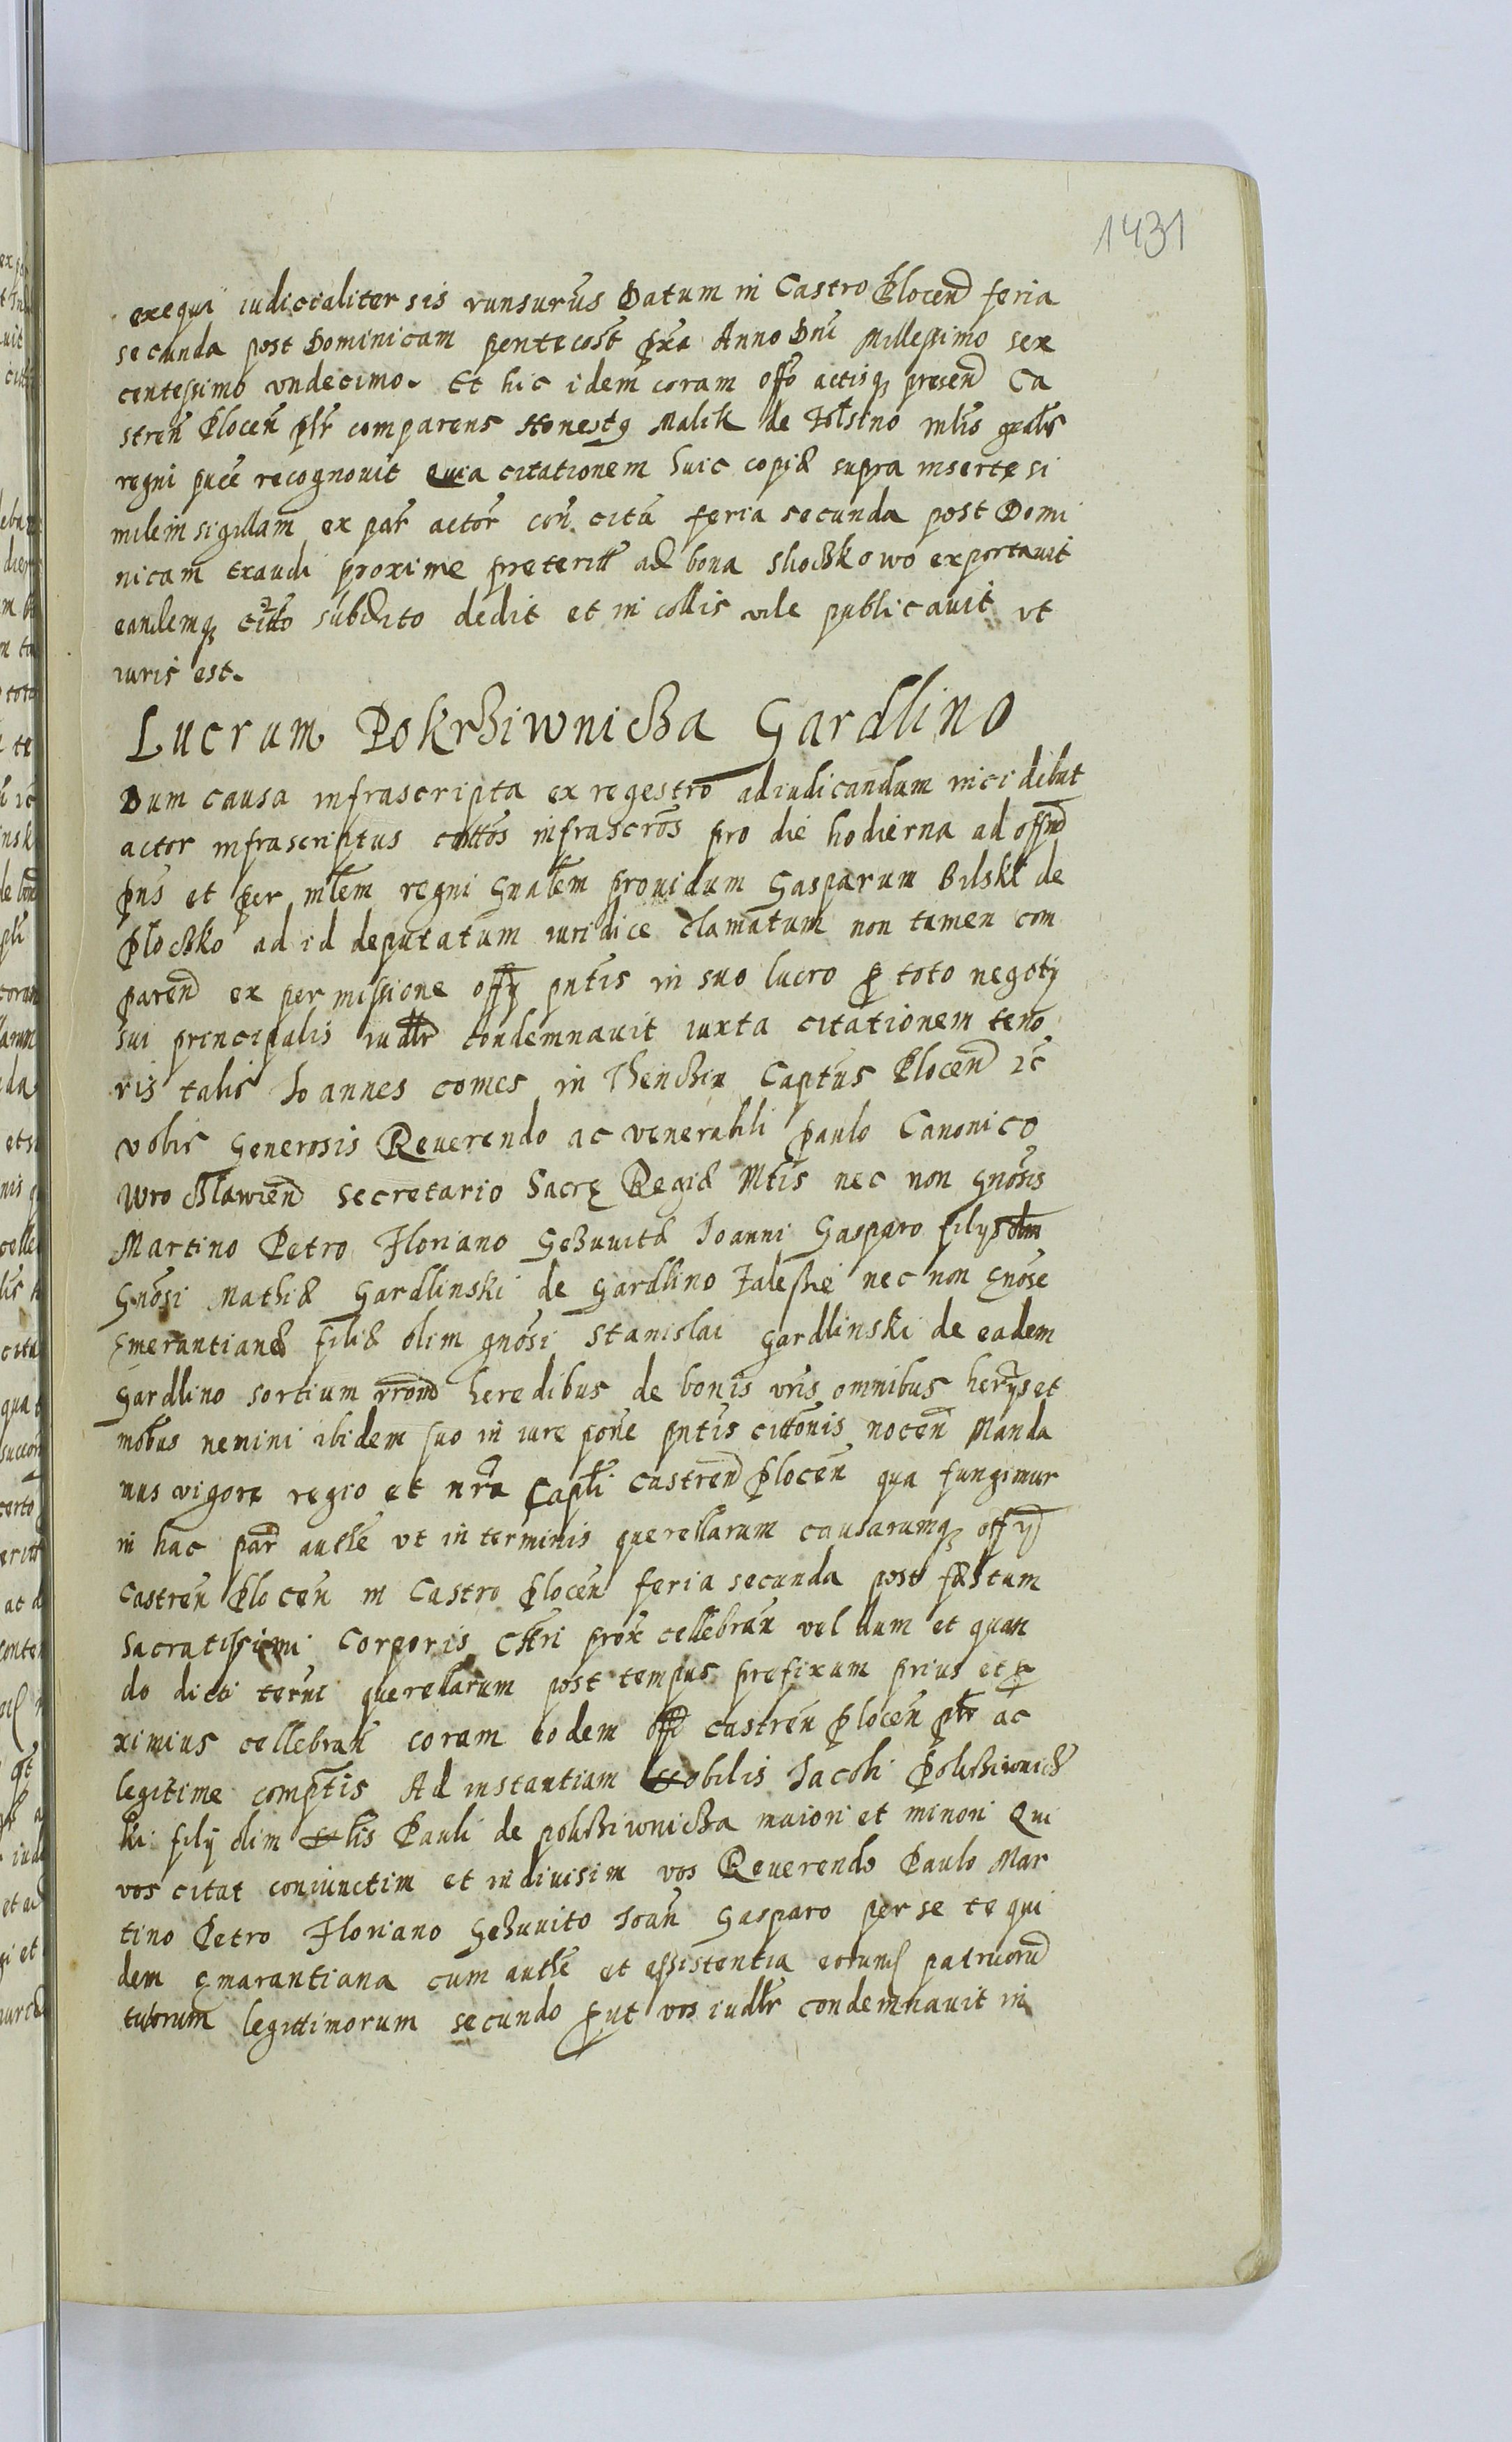 1431
exequi iudicialiter sis runsurus Datum in Castro Plocen feria
secunda post Dominicam pentecost prx̃a Anno Dni Millessimo sex
centessimo vndecimo. Et hic idem coram offo actisq presen Ca
stren Plocen psr comparens Honestg Malik de mlis gnalis
regni puce recognouit quia citationem huic copiæ supra inserte si
milem sigillam ex par actor con cita feria secunda post Domi
nicam Exaudi proxime preterit ad bona Shoczkowo exportauit
eandemq citto subdito dedit et in collis vile publicauit vt
iuris est.
Lucrum Pokrziwnicza Gardlino
Dum causa infrascripta ex regestro adiudicandum incidebat
actor infrascriptus cittos infrascros pro die hodierna ad offm
pns et per mlem regni Gnalem prouidum Gasparum Bilski de
Ploczko ad id deputatum iuridice clamatum non tamen com
paren ex permissione offy pntis in suo lucro p toto negoty
sui principalis iudlr condemnauit iuxta citationem teno
ris talis Joannes comes in Thenczin Captus Plocen ec
vobis Generosis Reuerendo ac venerabili Paulo Canonico
Wroczlawien secretario Sacrę Regiæ Mtis nec non gnosis
Martino Petro Floriano Gezuuitæ Joanni Gasparo filys olim
Gnosi Mathiæ Gardlinski de Gardlino Zalesskie nec non Gnose
Emerantianæ filiæ olim gnosi Stanislai Gardlinski de eadem
Gardlino sortium rrone heredibus de bonis vris omnibus herys et
mobus nemini ibidem suo in iure pone pntis cittonis nocen Manda
mus vigore regio et nra Capli castren Plocen qua fungimur
in hac par authe vt in terminis querellarum causarumq offy
castren Plocen in Castro Plocen feria secunda post fæstum
Sacratissimi Corporis Chri prox cellebran vel dum et quan
do dicti termi querellarum post tempus prefixum prius et p
ximius cellebran coram eodem offo castren Plocen psr ac
legitime comptis Ad instantiam Nobilis Jacobi Pokrziwnicz
ki fily olim Nlis Pauli de pokrziwnicza maiori et minori Qui
vos citat coniunctim et indiuisim vos Reuerendo Paulo Mar
tino Petro Floriano Gezuuito Joan Gasparo per se te qui
dem Emarantiana cum authe et assistentia eorund patruorum
tutorum legittimorum secundo put vos iudlr condemnauit in